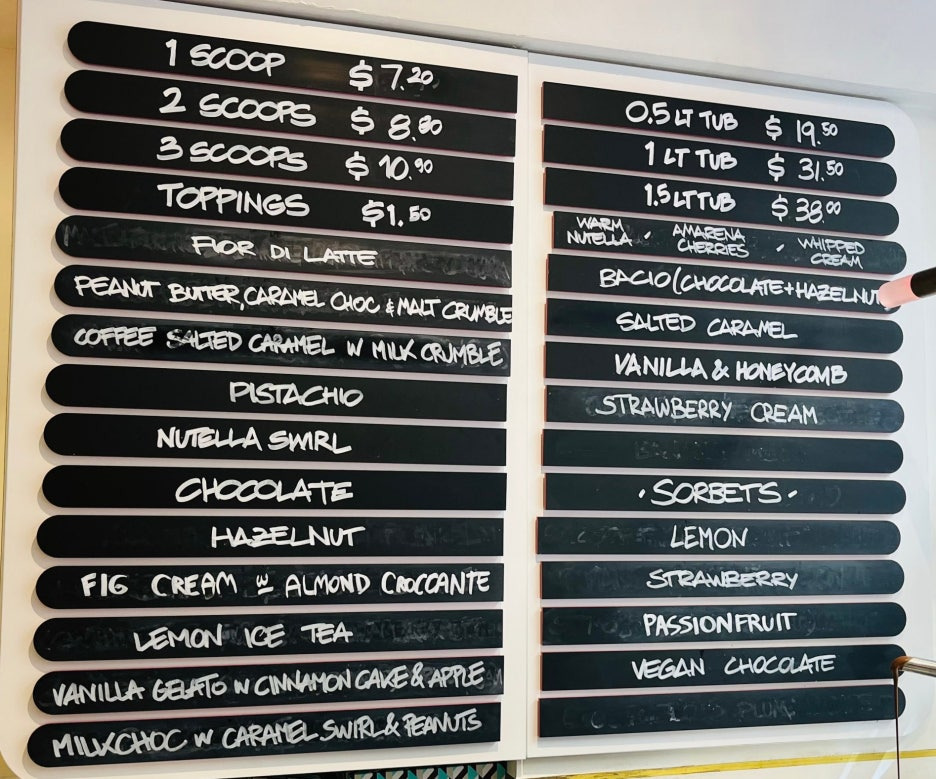 1 SCOOP $7.20
2 SCOOPS $8.80
3 SCOOPS $10.90
TOPPINGS $1.50
FIOR DI LATTE
PEANUT BUTTER, CARAMEL CHOC & MALT CRUMBLE
COFFEE SALTED CARAMEL W MILK CRUMBLE
PISTACHIO
NUTELLA SWIRL
CHOCOLATE
HAZELNUT
FIG CREAM W ALMOND CROCCANTE
LEMON ICE TEA
VANILLA GELATO W CINNAMON CAKE & APPLE
MILKCHOC W CARAMEL SWIRL & PEANUTS
0.5 LT TUB $19.50
1 LT TUB $31.50
1.5 LT TUB $38.00
WARM NUTELLA · AMARENA CHERRIES · WHIPPED CREAM
BACIO (CHOCOLATE + HAZELNUT
SALTED CARAMEL
VANILLA & HONEYCOMB
STRAWBERRY CREAM
· SORBETS ·
LEMON
STRAWBERRY
PASSIONFRUIT
VEGAN CHOCOLATE
PLUM